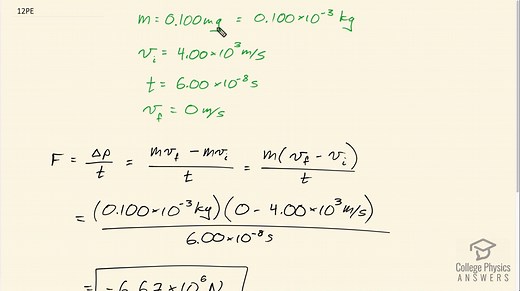 12PE
m = 0.100mg = 0.100×10⁻³ kg
vᵢ = 4.00×10³ m/s
t = 6.00×10⁻⁸ s
v_f = 0 m/s
F = Δp/t = (mv_f − mvᵢ)/t = m(v_f − vᵢ)/t
= (0.100×10⁻³ kg)(0 − 4.00×10³ m/s)
6.00×10⁻⁸ s
= −6.67×10⁶ N
College Physics
ANSWERS